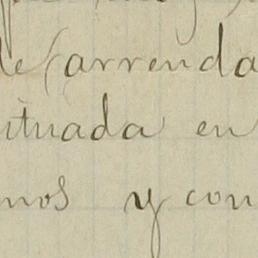 de (arrenda
ituada en
nos y con